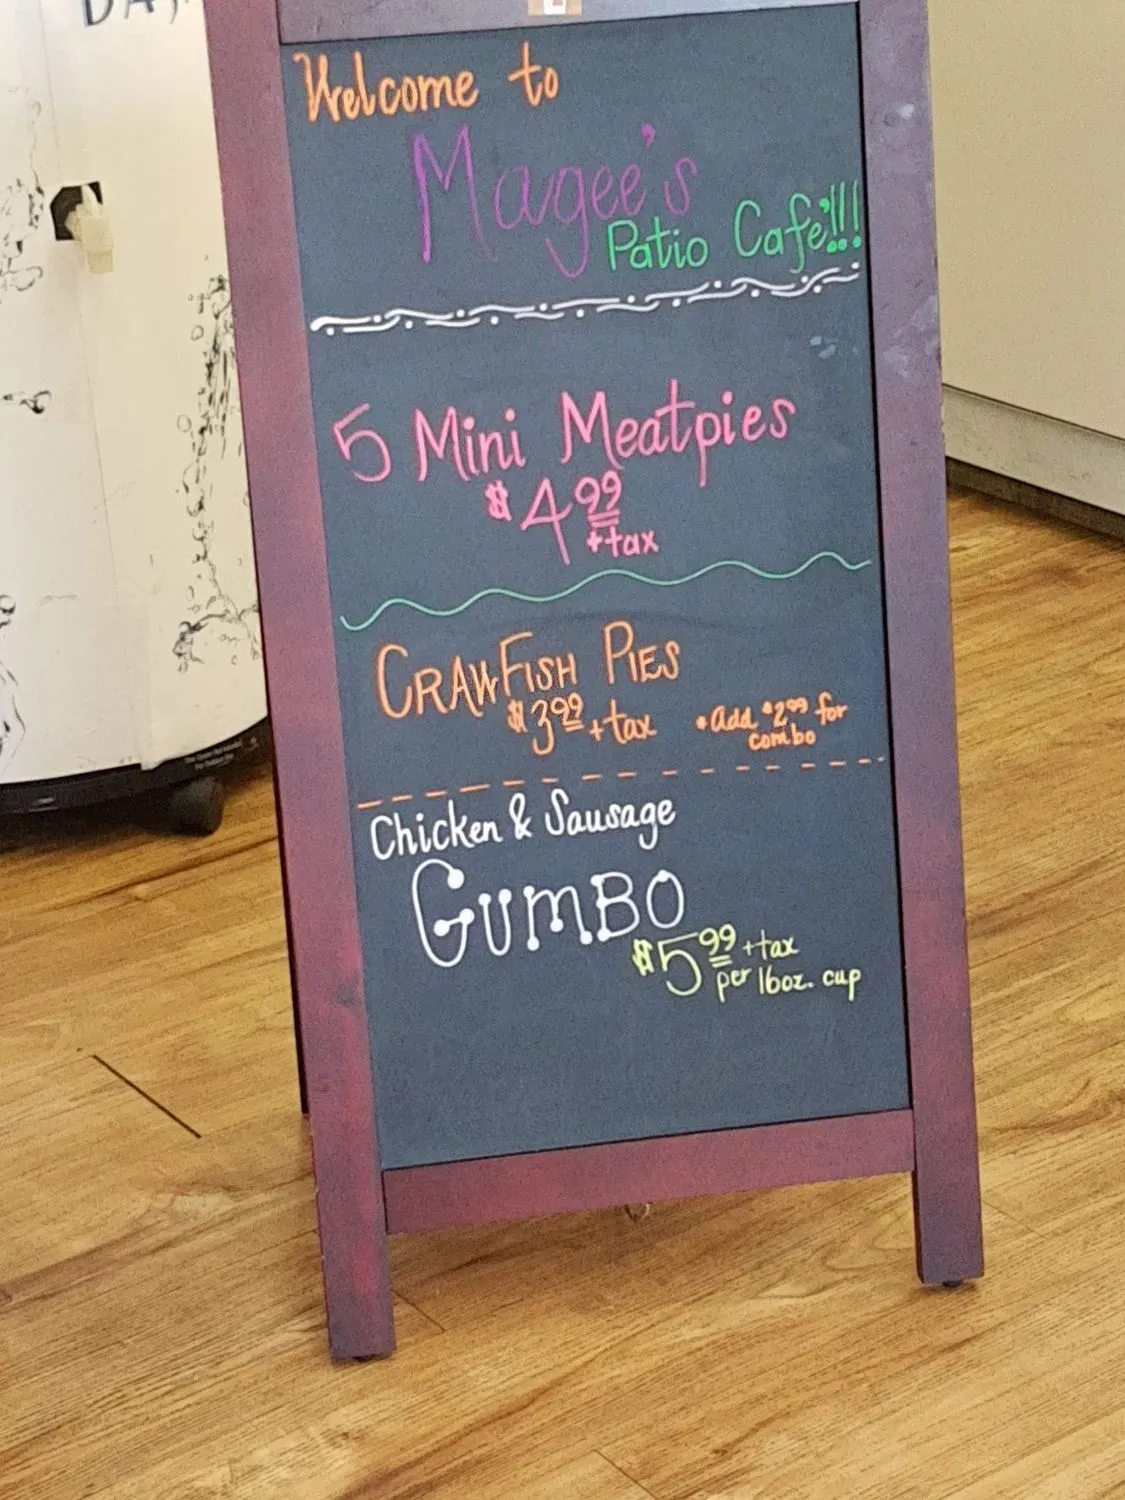 Welcome to
Magee's
Patio Café!!!
5 Mini Meatpies
$4.99
+tax
CRAWFISH PIES
$3.99 +tax
•Add $2.99 for
combo
Chicken & Sausage
GUMBO
$5.99 +tax
per 16oz. cup